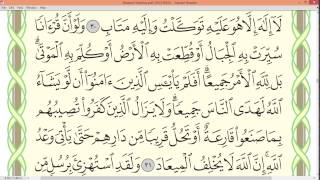 لَآ إِلَٰهَ إِلَّا هُوَ عَلَيْهِ تَوَكَّلْتُ وَإِلَيْهِ مَتَابِ ٣٠ وَلَوْ أَنَّ قُرْءَانًا
سُيِّرَتْ بِهِ ٱلْجِبَالُ أَوْ قُطِّعَتْ بِهِ ٱلْأَرْضُ أَوْ كُلِّمَ بِهِ ٱلْمَوْتَىٰ
بَل لِّلَّهِ ٱلْأَمْرُ جَمِيعًا أَفَلَمْ يَا۟يْـَٔسِ ٱلَّذِينَ ءَامَنُوٓا۟ أَن لَّوْ يَشَآءُ
ٱللَّهُ لَهَدَى ٱلنَّاسَ جَمِيعًا وَلَا يَزَالُ ٱلَّذِينَ كَفَرُوا۟ تُصِيبُهُم
بِمَا صَنَعُوا۟ قَارِعَةٌ أَوْ تَحُلُّ قَرِيبًا مِّن دَارِهِمْ حَتَّىٰ يَأْتِىَ وَعْدُ
ٱللَّهِ إِنَّ ٱللَّهَ لَا يُخْلِفُ ٱلْمِيعَادَ ٣١ وَلَقَدِ ٱسْتُهْزِئَ بِرُسُلٍ مِّن